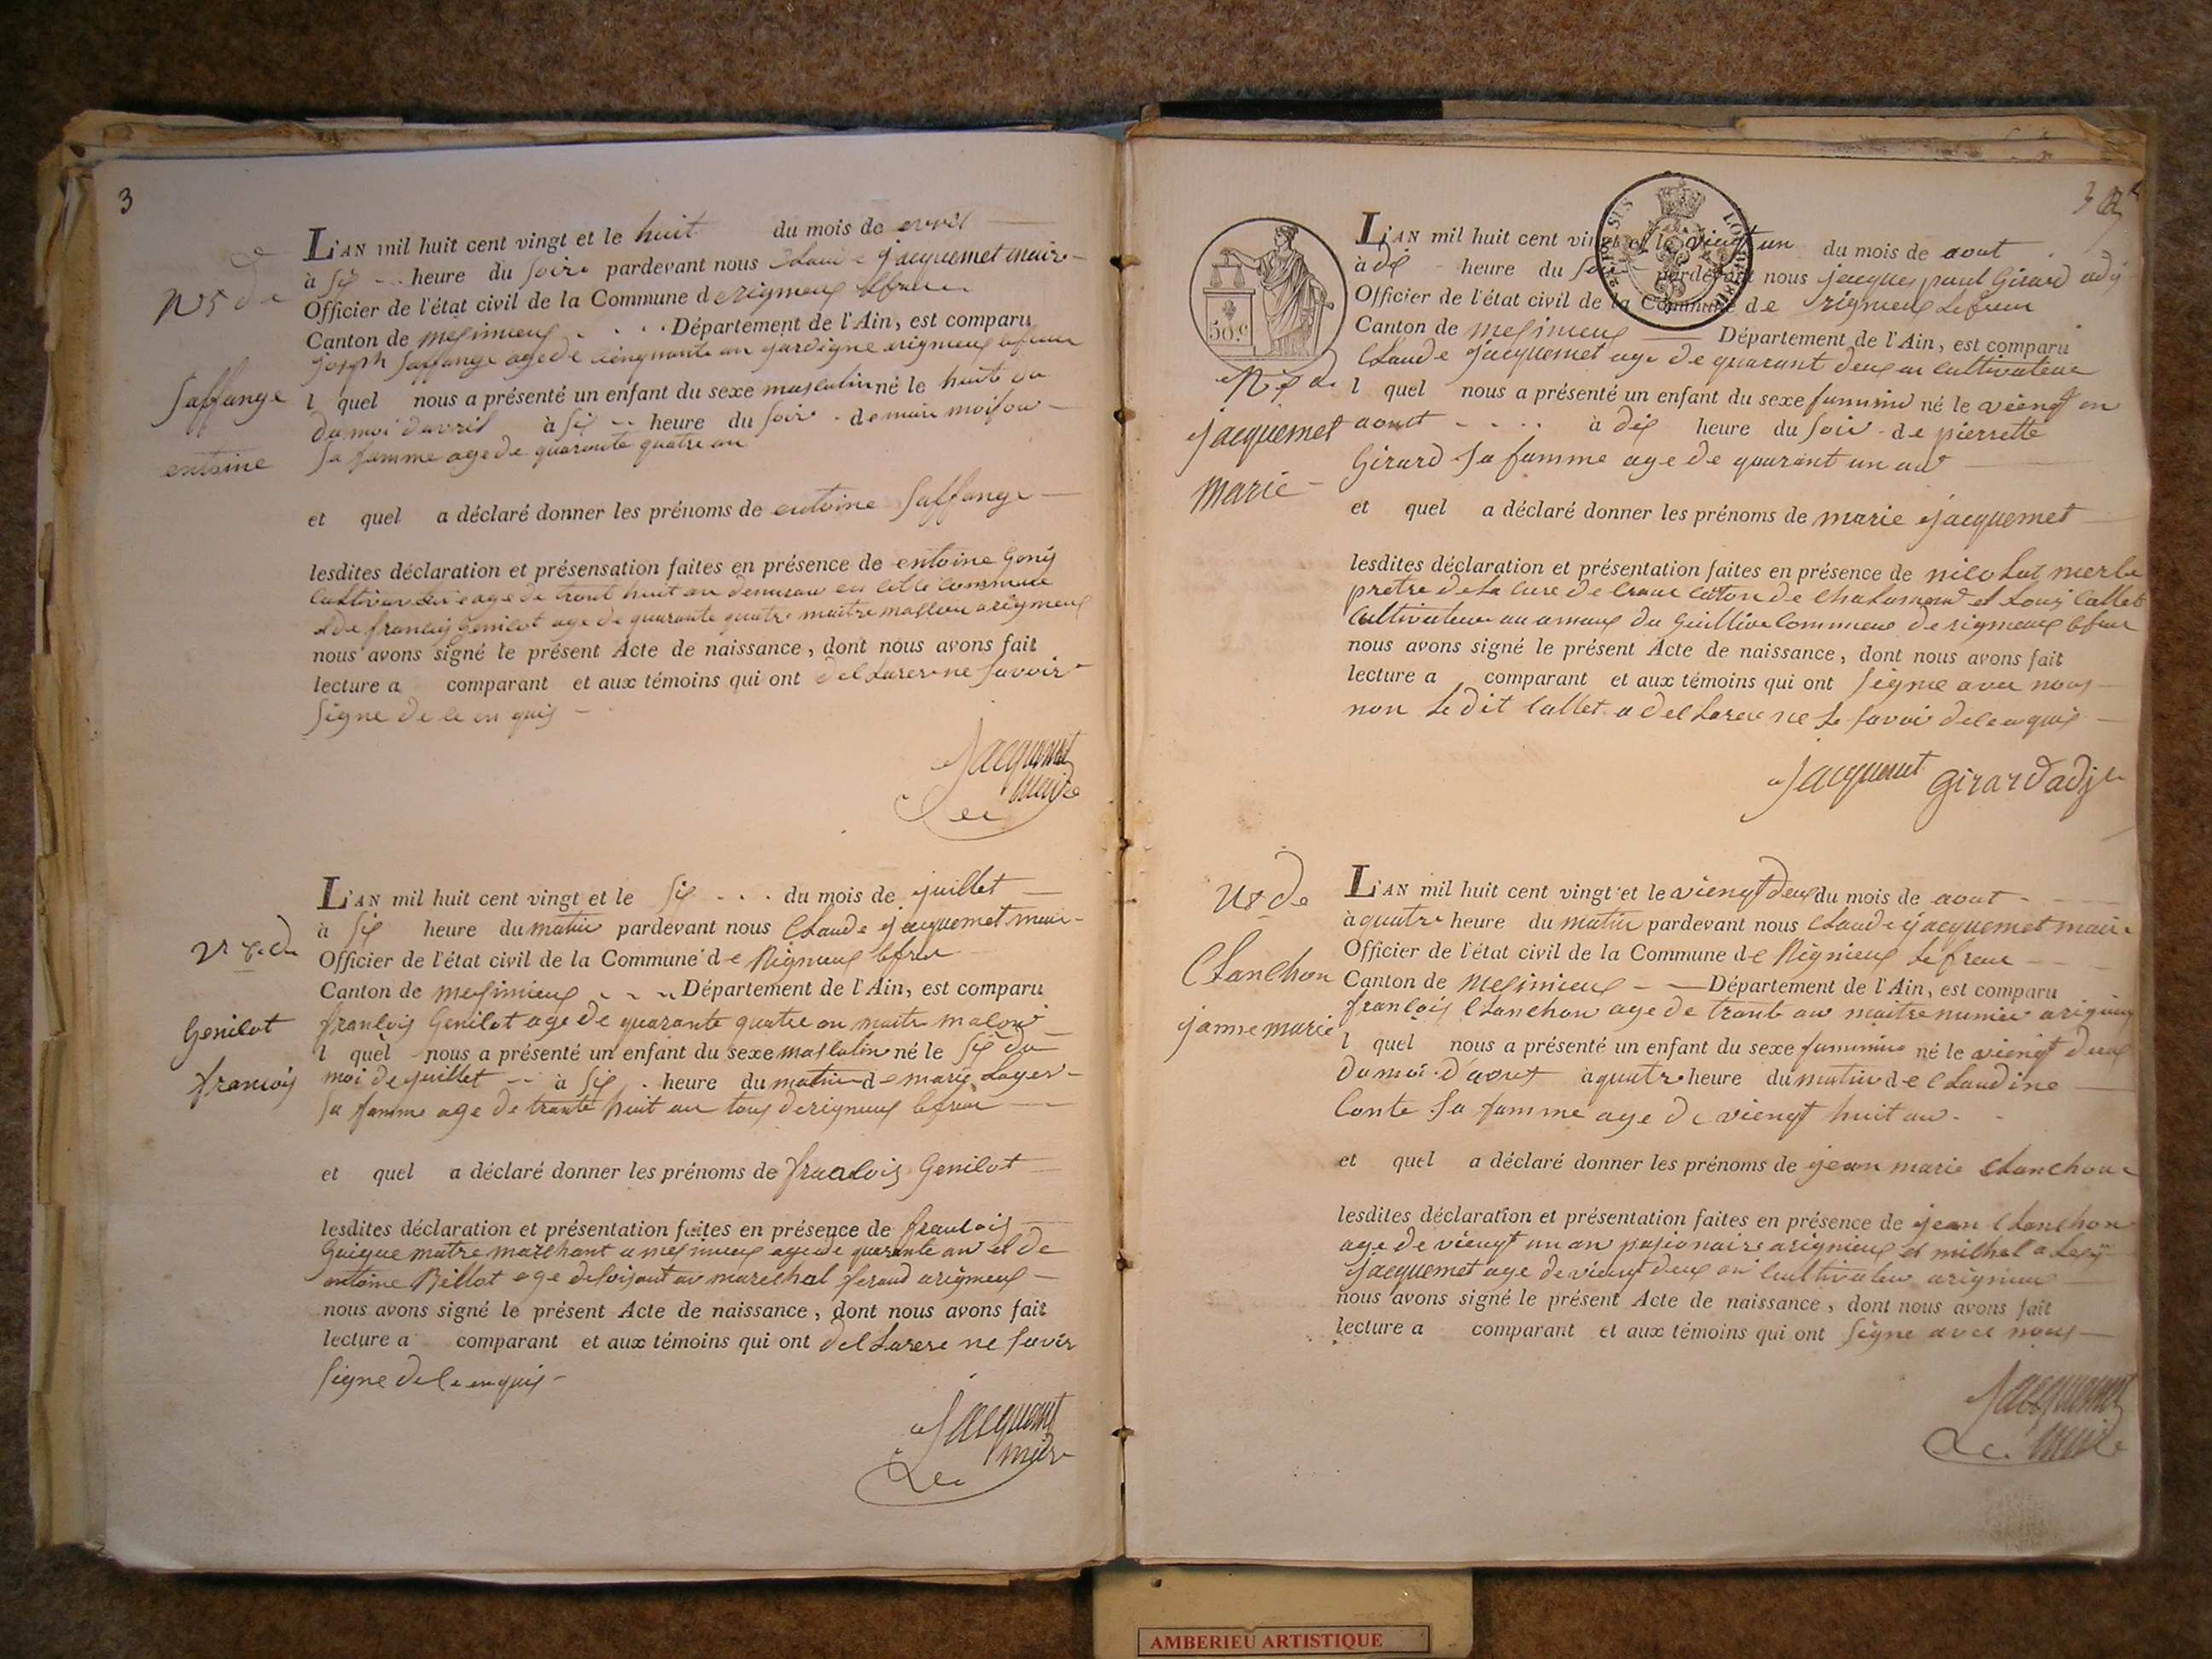 3
N 5 de
Saffange
entoine
L'AN mil huit cent vingt et le huit du mois de avril
à six heure du soire pardevant nous Claude jacquemet maire
Officier de l'état civil de la Commune de rigneux lefran
Canton de meximieux Département de l'Ain, est comparu
joseph Saffange age de cienquante an
l quel nous a présenté un enfant du sexe masculin né le huit du
du moi davril à six heure du soir de
sa famme age de quarante quatre an
et quel a déclaré donner les prénoms de entoine Saffange
lesdites déclaration et présensation faites en présence de entoine
cultivateur age de trant huit an commune
et de francois Genilot age de quarante quatre maitre masson a rigneux
nous avons signé le présent Acte de naissance, dont nous avons fait
lecture a comparant et aux témoins qui ont delLarer ne savoir
signe de ce en quis
Jacquemet
maire
Genilot
francois
L'AN mil huit cent vingt et le six du mois de juillet
à six heure du matin pardevant nous Claude jacquemet maire
Officier de l'état civil de la Commune de Rigneux lefran
Canton de meximieux Département de l'Ain, est comparu
francois Genilot age de quarante quatre an maitre mason
l quel nous a présenté un enfant du sexe masculin né le six du
moi de juillet à six heure du matin de marie Loyer
sa famme age de trante huit an tous de rigneux lefran
et quel a déclaré donner les prénoms de francois Genilot
lesdites déclaration et présentation faites en présence de francois
Guigue matre marchant a meximieux age de quarante an et de
antoine Billot age de soisant an marechal ferand a rigneux
nous avons signé le présent Acte de naissance, dont nous avons fait
lecture a comparant et aux témoins qui ont delLarere ne savir
signe de ce enquis
Jacquemet
maire
50.c
jacquemet
marie
L'AN mil huit cent vingt et le viengt un du mois de aout
à dix heure du soir pardevant nous jacques paul Girard adj
Officier de l'état civil de la Commune de rigneux Lefran
Canton de meximieux Département de l'Ain, est comparu
Claude jacquemet age de quarant deux an cultivateur
l quel nous a présenté un enfant du sexe faminin né le viengt un
aout à dix heure du soir de pierrette
Girard sa famme age de quarant un an
et quel a déclaré donner les prénoms de marie jacquemet
lesdites déclaration et présentation faites en présence de nicolat merle
pretre de la cure de Crans Caton de Chalamond et Louis Callet
cultivateur au amaux du Guillive Commune de rigneux lefran
nous avons signé le présent Acte de naissance, dont nous avons fait
lecture a comparant et aux témoins qui ont signe avec nous
non Le dit Callet a delLarere ne Le savoir de ce enquis
Jacquemet Girard adjt
N 8 de
Clanchon
janne marie
L'AN mil huit cent vingt et le viengt deux du mois de aout
à quatre heure du matin pardevant nous Claude jacquemet maire
Officier de l'état civil de la Commune de Rignieux Lefran
Canton de Meximieux Département de l'Ain, est comparu
francois Clanchon age de trant an maitre a rignieux
l quel nous a présenté un enfant du sexe faminine né le viengt deux
du moi d'aout à quatre heure du matin de Claudine
Conte sa famme age de viengt huit an
et quel a déclaré donner les prénoms de jean marie Clanchon
lesdites déclaration et présentation faites en présence de jean Clanchon
age de viengt un an a rignieux et michel
jacquemet age de viengt deux an cultivateur a rignieux
nous avons signé le présent Acte de naissance, dont nous avons fait
lecture a comparant et aux témoins qui ont signe avec nous
Jacquemet
maire
AMBERIEU ARTISTIQUE